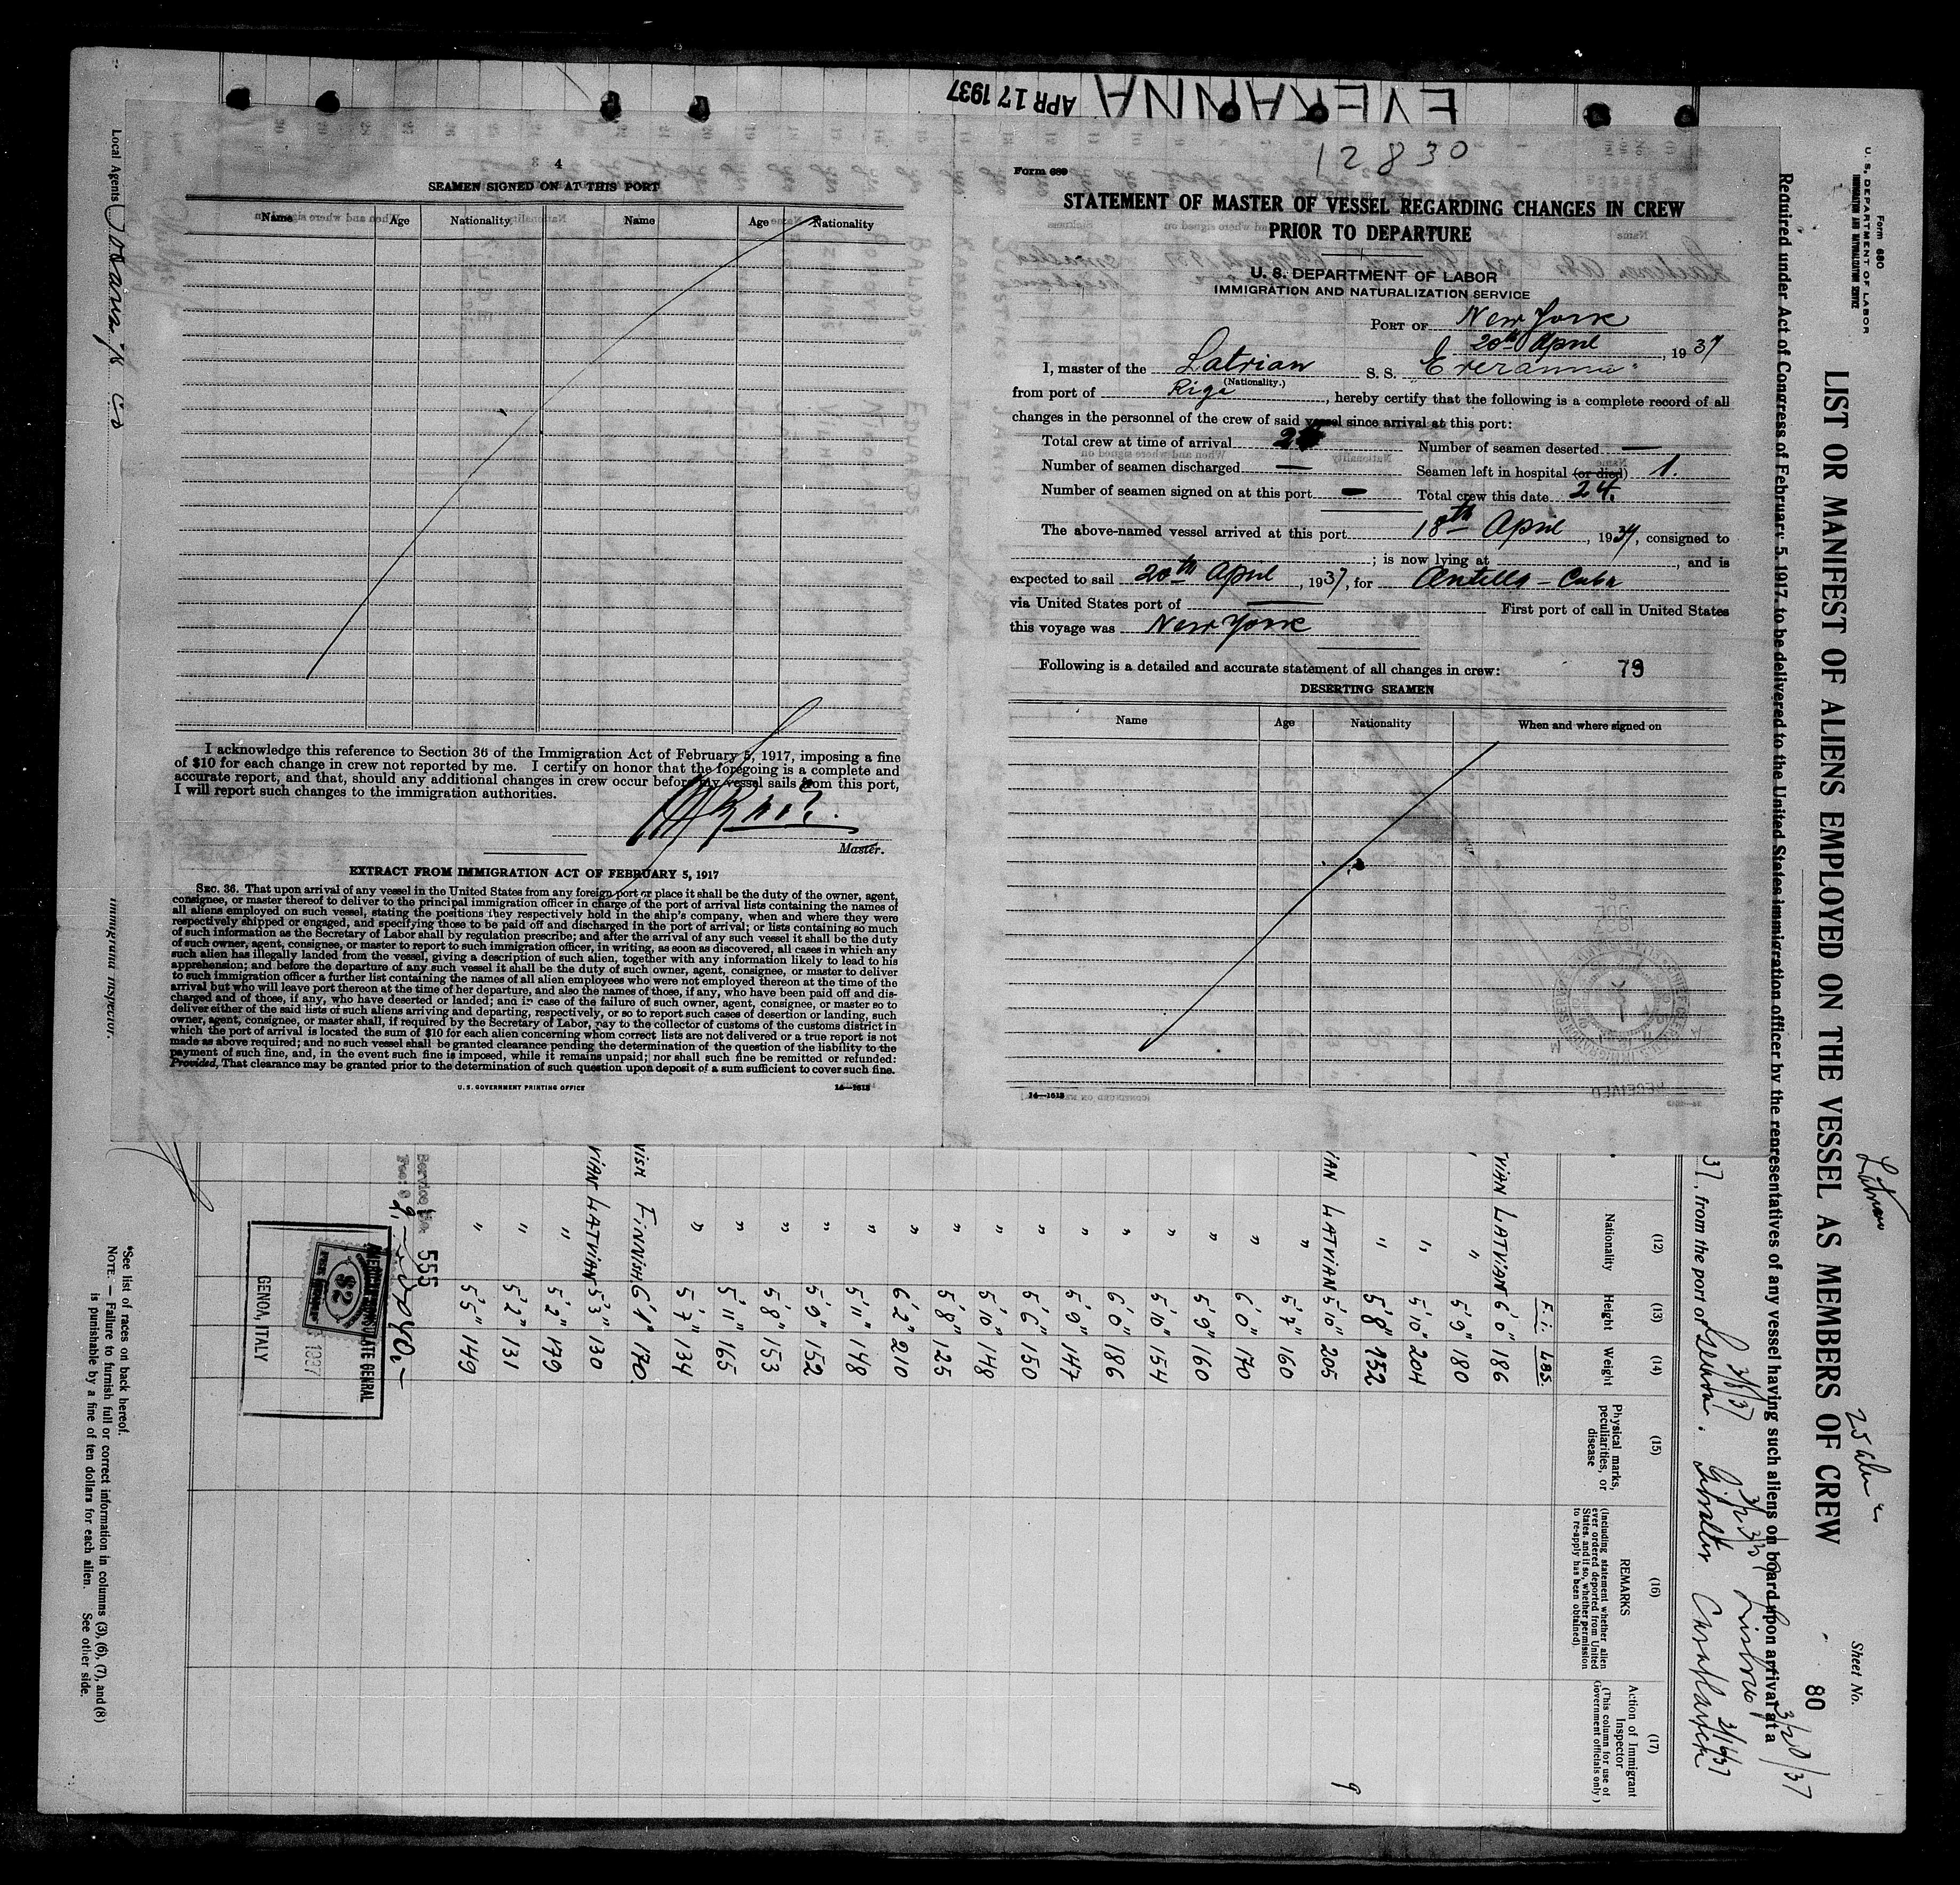 EVERANNA APR 17 1937
12830
4
SEAMEN SIGNED ON AT THIS PORT
Name Age Nationality Name Age Nationality
I acknowledge this reference to Section 36 of the Immigration Act of February 5, 1917, imposing a fine
of $10 for each change in crew not reported by me. I certify on honor that the foregoing is a complete and
accurate report, and that, should any additional changes in crew occur before my vessel sails from this port,
I will report such changes to the immigration authorities.
Master.
EXTRACT FROM IMMIGRATION ACT OF FEBRUARY 5, 1917
SEC. 36. That upon arrival of any vessel in the United States from any foreign port or place it shall be the duty of the owner, agent,
consignee, or master thereof to deliver to the principal immigration officer in charge of the port of arrival lists containing the names of
all aliens employed on such vessel, stating the positions they respectively hold in the ship's company, when and where they were
respectively shipped or engaged, and specifying those to be paid off and discharged in the port of arrival; or lists containing so much
of such information as the Secretary of Labor shall by regulation prescribe; and after the arrival of any such vessel it shall be the duty
of such owner, agent, consignee, or master to report to such immigration officer, in writing, as soon as discovered, all cases in which any
such alien has illegally landed from the vessel, giving a description of such alien, together with any information likely to lead to his
apprehension; and before the departure of any such vessel it shall be the duty of such owner, agent, consignee, or master to deliver
to such immigration officer a further list containing the names of all alien employees who were not employed thereon at the time of the
arrival but who will leave port thereon at the time of her departure, and also the names of those, if any, who have been paid off and dis-
charged and of those, if any, who have deserted or landed; and in case of the failure of such owner, agent, consignee, or master so to
deliver either of the said lists of such aliens arriving and departing, respectively, or so to report such cases of desertion or landing, such
owner, agent, consignee, or master shall, if required by the Secretary of Labor, pay to the collector of customs of the customs district in
which the port of arrival is located the sum of $10 for each alien concerning whom correct lists are not delivered or a true report is not
made as above required; and no such vessel shall be granted clearance pending the determination of the question of the liability to the
payment of such fine, and, in the event such fine is imposed, while it remains unpaid; nor shall such fine be remitted or refunded:
Provided, That clearance may be granted prior to the determination of such question upon deposit of a sum sufficient to cover such fine.
U. S. GOVERNMENT PRINTING OFFICE 14—1613
Form 689
STATEMENT OF MASTER OF VESSEL REGARDING CHANGES IN CREW
PRIOR TO DEPARTURE
U. S. DEPARTMENT OF LABOR
IMMIGRATION AND NATURALIZATION SERVICE
PORT OF New York
20th April, 1937
I, master of the Latvian S. S. Everanna
(Nationality.)
from port of Riga, hereby certify that the following is a complete record of all
changes in the personnel of the crew of said vessel since arrival at this port:
Total crew at time of arrival Number of seamen deserted —
Number of seamen discharged — Seamen left in hospital (or died) 1.
Number of seamen signed on at this port — Total crew this date 24.
The above-named vessel arrived at this port 18th April, 1937, consigned to
; is now lying at , and is
expected to sail 20th April, 1937, for Antilla - Cuba
via United States port of — First port of call in United States
this voyage was New York
Following is a detailed and accurate statement of all changes in crew: 79
DESERTING SEAMEN
Name Age Nationality When and where signed on
14—1613
Form 680
U. S. DEPARTMENT OF LABOR
IMMIGRATION AND NATURALIZATION SERVICE
Latvian
Sheet No.
80
LIST OR MANIFEST OF ALIENS EMPLOYED ON THE VESSEL AS MEMBERS OF CREW
Required under Act of Congress of February 5, 1917, to be delivered to the United States immigration officer by the representatives of any vessel having such aliens on board upon arrival at a
37, from the port of Genova. Gibraltar Casablanca
3/20/37
(12) (13) (14) (15) (16) (17)
Nationality Height Weight Physical marks, peculiarities, or disease
REMARKS
(Including statement whether alien ever ordered deported from United States, and if so, whether permission to re-apply has been obtained)
Action of Immigrant Inspector
(This column for use of Government officials only)
F. i. LBS.
VIAN LATVIAN 6'0" 186
" 5'9" 180
" 5'10" 204
" 5'8"
IAN LATVIAN 5'10" 205
" 5'7" 160
" 6'0" 170
" 5'9" 160
" 5'10" 154
" 6'0" 186
" 5'9" 147
" 5'6" 150
" 5'10" 148
" 5'8" 125
" 6'2" 210
" 5'11" 148
" 5'9" 152
" 5'8" 153
" 5'11" 165
" 5'7" 134
NISH FINNISH 6'1" 170
VIAN LATVIAN 5'3" 130
" 5'2" 179
" 5'2" 131
" 5'5" 149
Service No. 555
AMERICAN CONSULATE GENERAL
$2
GENOA, ITALY
Local Agents
Immigrant Inspector.
*See list of races on back hereof.
NOTE.—Failure to furnish full or correct information in columns (3), (6), (7), and (8)
is punishable by a fine of ten dollars for each alien. See other side.